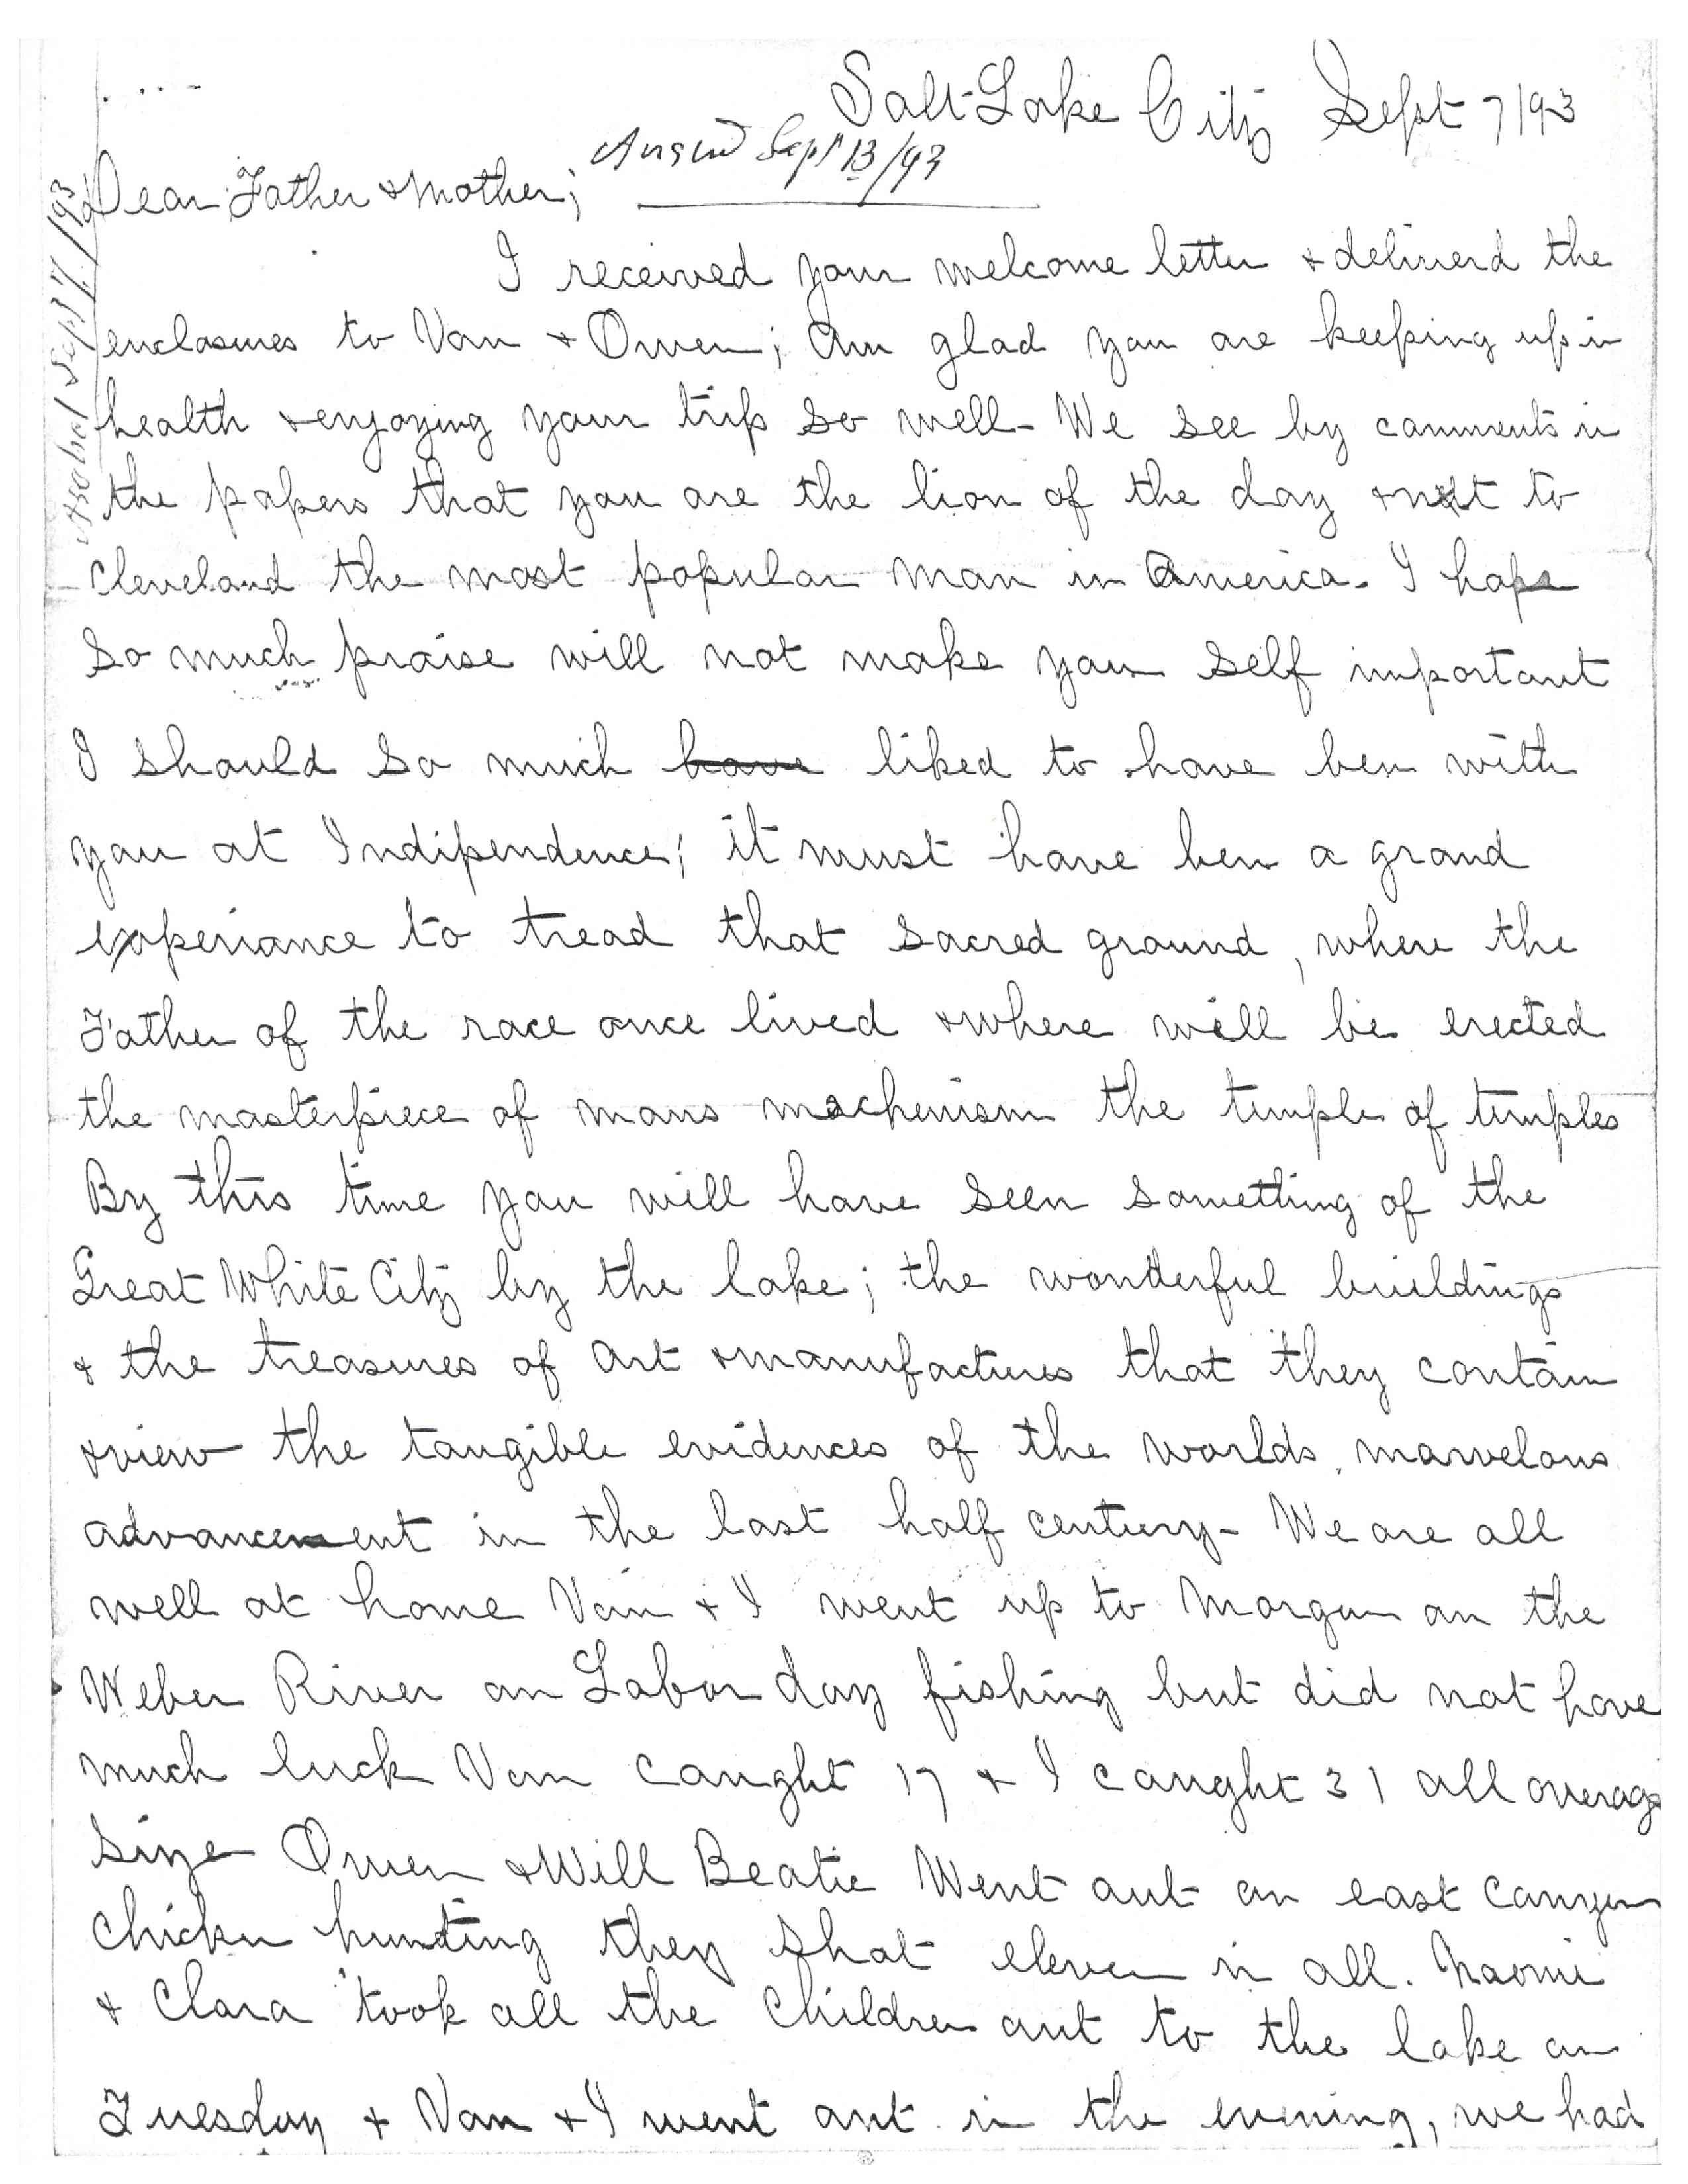 Salt Lake City Sept 7/93
Answd Sept 13/93
Asahel Sept 7/93
Dear Father & Mother;
I received your welcome letter & deliverd the
enclosures to Van & Owen; Am glad you are keeping up in
health & enjoying your trip so well - We see by comments in
the papers that you are the lion of the day & next to
Cleveland the most popular man in America. I hope
so much praise will not make you self important
I should so much have liked to have ben with
you at Indipendence; it must have ben a grand
experiance to tread that sacred ground, where the
Father of the race once lived & where will be erected
the masterpiece of mans machenism the temple of temples
By this time you will have seen something of the
Great White City by the lake; the wonderful buildings
& the treasures of Art & manufactures that they contain
& view the tangible evidences of the worlds marvelous
advancement in the last half century - We are all
well at home Van & I went up to Morgan on the
Weber River on Labor day fishing but did not have
much luck Van caught 17 & I caught 31 all average
size Owen & Will Beatie Went out on east canyon
chicken hunting they shot eleven in all. Naomi
& Clara took all the Children out to the lake on
Tuesday & Van & I went out in the evening, we had